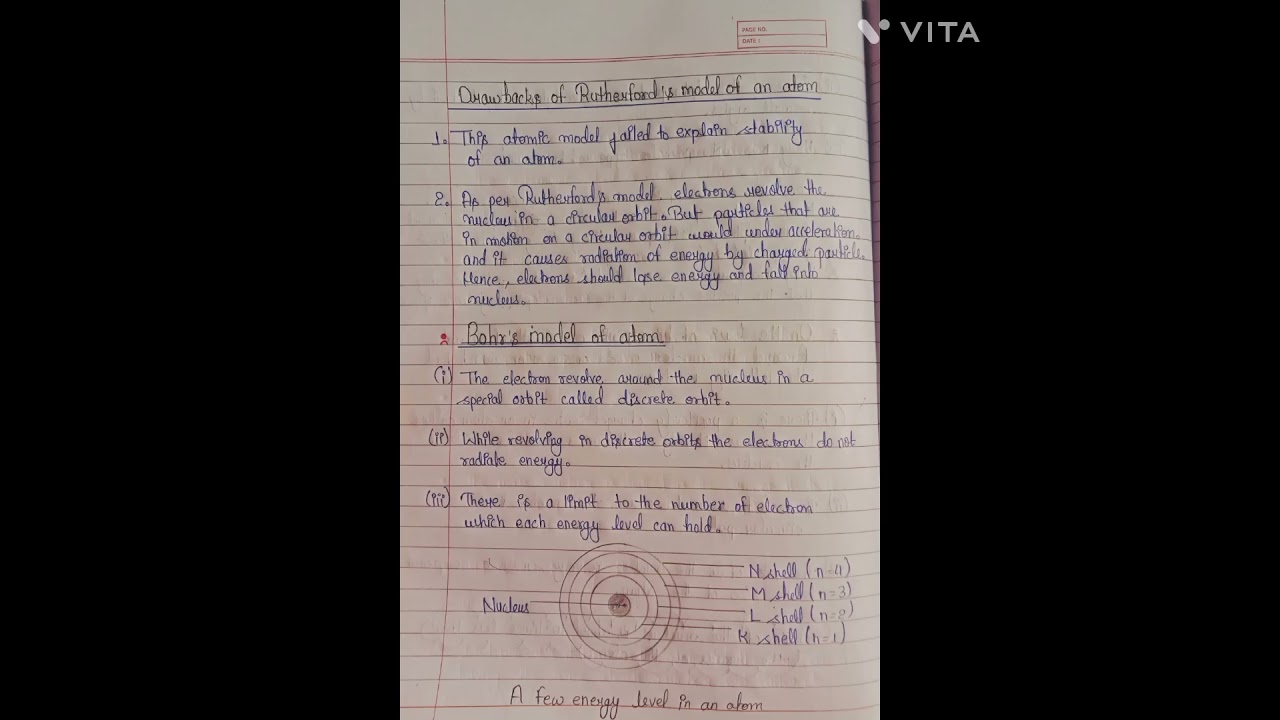 VITA
PAGE NO.
DATE :
Drawbacks of Rutherford's model of an atom
1. This atomic model failed to explain stability
of an atom.
2. As per Rutherford's model, electrons revolve the
nucleus in a circular orbit. But particles that are
in motion on a circular orbit would under acceleration.
and it causes radiation of energy by charged particle.
Hence, electrons should lose energy and fall into
nucleus.
Bohr's model of atom
(i) The electron revolve around the nucleus in a
special orbit called discrete orbit.
(ii) While revolving in discrete orbits the electrons do not
radiate energy.
(iii) There is a limit to the number of electron
which each energy level can hold.
N shell (n=4)
M shell (n=3)
Nucleus
L shell (n=2)
K shell (n=1)
A few energy level in an atom